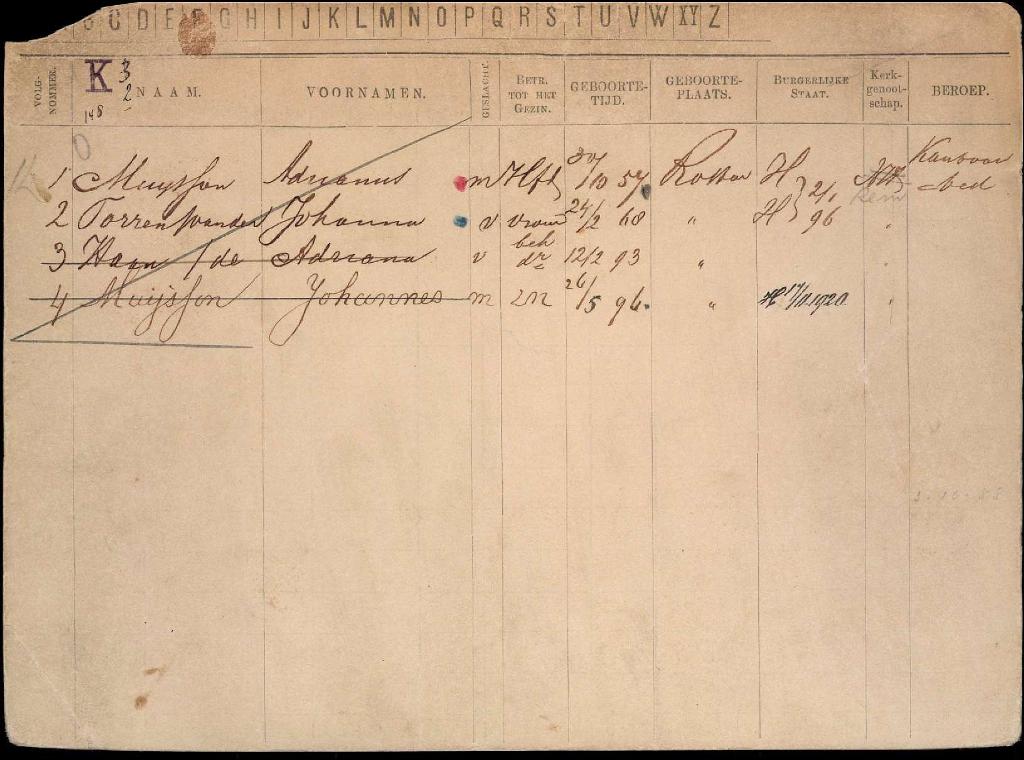 C D E F G H I J K L M N O P Q R S T U V W XY Z
VOLG-NOMMER. K 3 2 148 NAAM. VOORNAMEN. GESLACHT. BETR. TOT HET GEZIN. GEBOORTE-TIJD. GEBOORTE-PLAATS. BURGERLIJKE STAAT. Kerk-genoot-schap. BEROEP.
1 Muijsson Adrianus m Hfd 30/10 57 Rotter H 2/1 96 Kantoor bed
2 Torren / van der Johanna v vrouw 24/2 68 " H "
3 Haan / de Adriana v beh dr 12/2 93 " "
4 Muijsson Johannes m zn 26/5 96. " H 17/11 1920 "